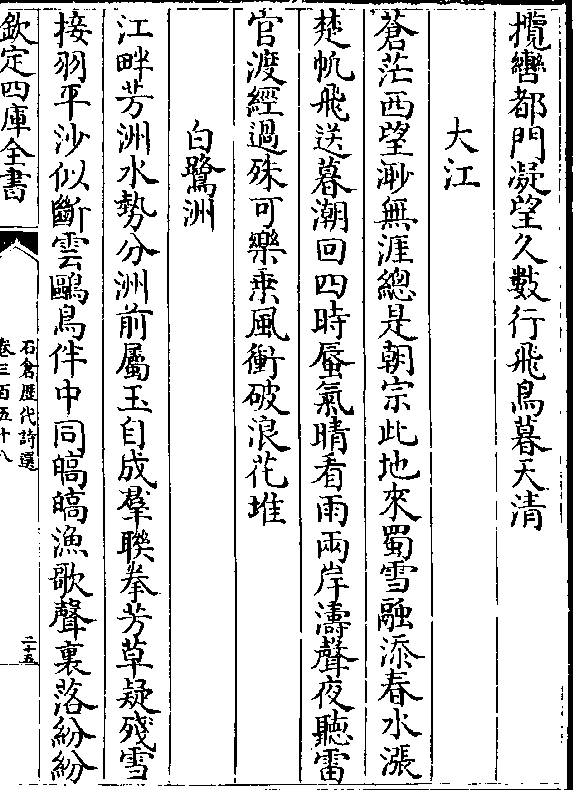 攬轡都門凝望久數行飛鳥暮天清
大江
蒼茫西望渺無涯總是朝宗此地來蜀雪融添春水漲
楚帆飛送暮潮回四時蜃氣晴看雨兩岸濤聲夜聽雷
官渡經過殊可樂乗風衝破浪花堆
白鷺洲
江畔芳洲水勢分洲前屬玉自成羣聯拳芳草疑殘雪
接羽平沙似斷雲鷗鳥伴中同皜皜漁歌聲裏落紛紛
欽定四庫全書
石倉歴代詩選
卷三百五十八
二十五